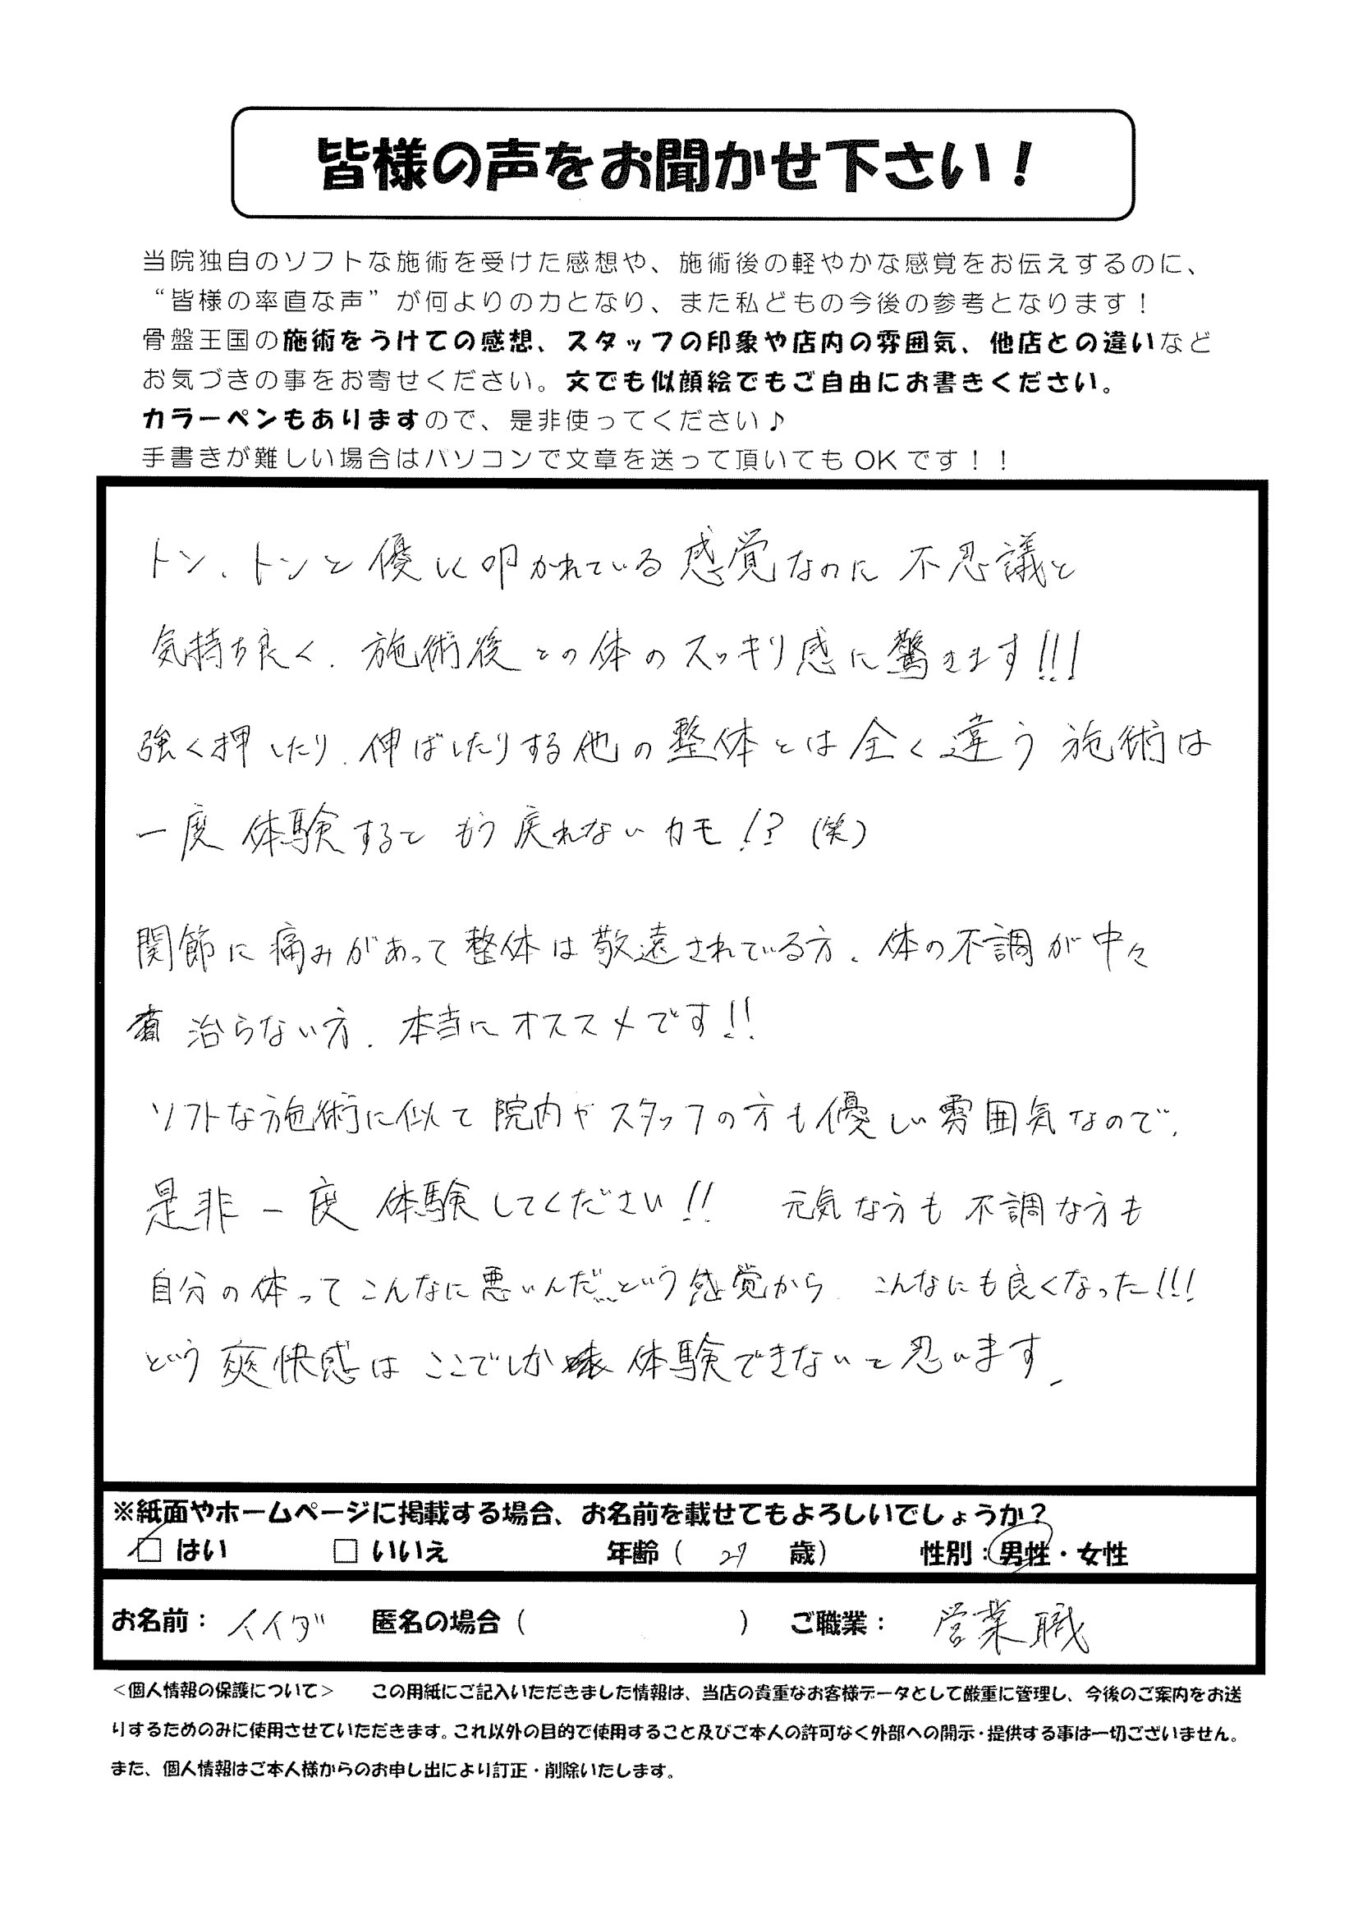 皆様の声をお聞かせ下さい！
当院独自のソフトな施術を受けた感想や、施術後の軽やかな感覚をお伝えするのに、
“皆様の率直な声”が何よりの力となり、また私どもの今後の参考となります！
骨盤王国の施術をうけての感想、スタッフの印象や店内の雰囲気、他店との違いなど
お気づきの事をお寄せください。文でも似顔絵でもご自由にお書きください。
カラーペンもありますので、是非使ってください♪
手書きが難しい場合はパソコンで文章を送って頂いてもOKです！！
トン、トンと優しく叩かれている感覚なのに不思議と
気持ち良く、施術後との体のスッキリ感に驚きます!!!
強く押したり、伸ばしたりする他の整体とは全く違う施術は
一度体験すると もう戻れないカモ!?(笑)
関節に痛みがあって整体は敬遠されている方、体の不調が中々
治らない方、本当にオススメです!!
ソフトな施術に似て院内やスタッフの方も優しい雰囲気なので、
是非一度体験してください!! 元気な方も不調な方も
自分の体ってこんなに悪いんだ…という感覚から、こんなにも良くなった!!!
という爽快感はここでしか体験できないと思います。
※紙面やホームページに掲載する場合、お名前を載せてもよろしいでしょうか？
☑ はい □ いいえ 年齢（ 27 歳） 性別：男性・女性
お名前： イイダ 匿名の場合（ ） ご職業： 営業職
＜個人情報の保護について＞ この用紙にご記入いただきました情報は、当店の貴重なお客様データとして厳重に管理し、今後のご案内をお送
りするためのみに使用させていただきます。これ以外の目的で使用すること及びご本人の許可なく外部への開示・提供する事は一切ございません。
また、個人情報はご本人様からのお申し出により訂正・削除いたします。